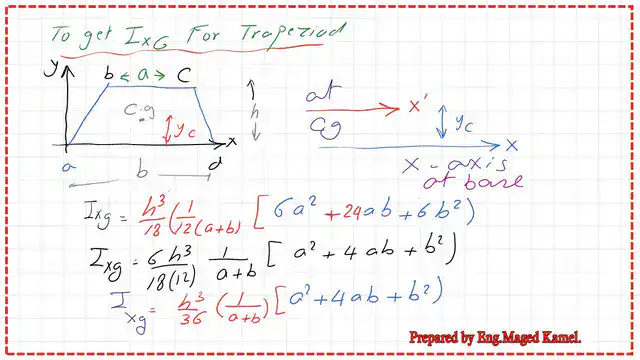 To get IxG For Traperiod
y
b ← a → c
c.g
yc
h
x
a
d
b
at
x'
cg
yc
x
x - axis
at base
Ixg = h³/18 (1/12(a+b)) [6a² + 24ab + 6b²)
Ixg = 6h³/18(12) 1/a+b [a² + 4ab + b²)
Ixg = h³/36 (1/a+b) [a² + 4ab + b²)
Prepared by Eng.Maged Kamel.